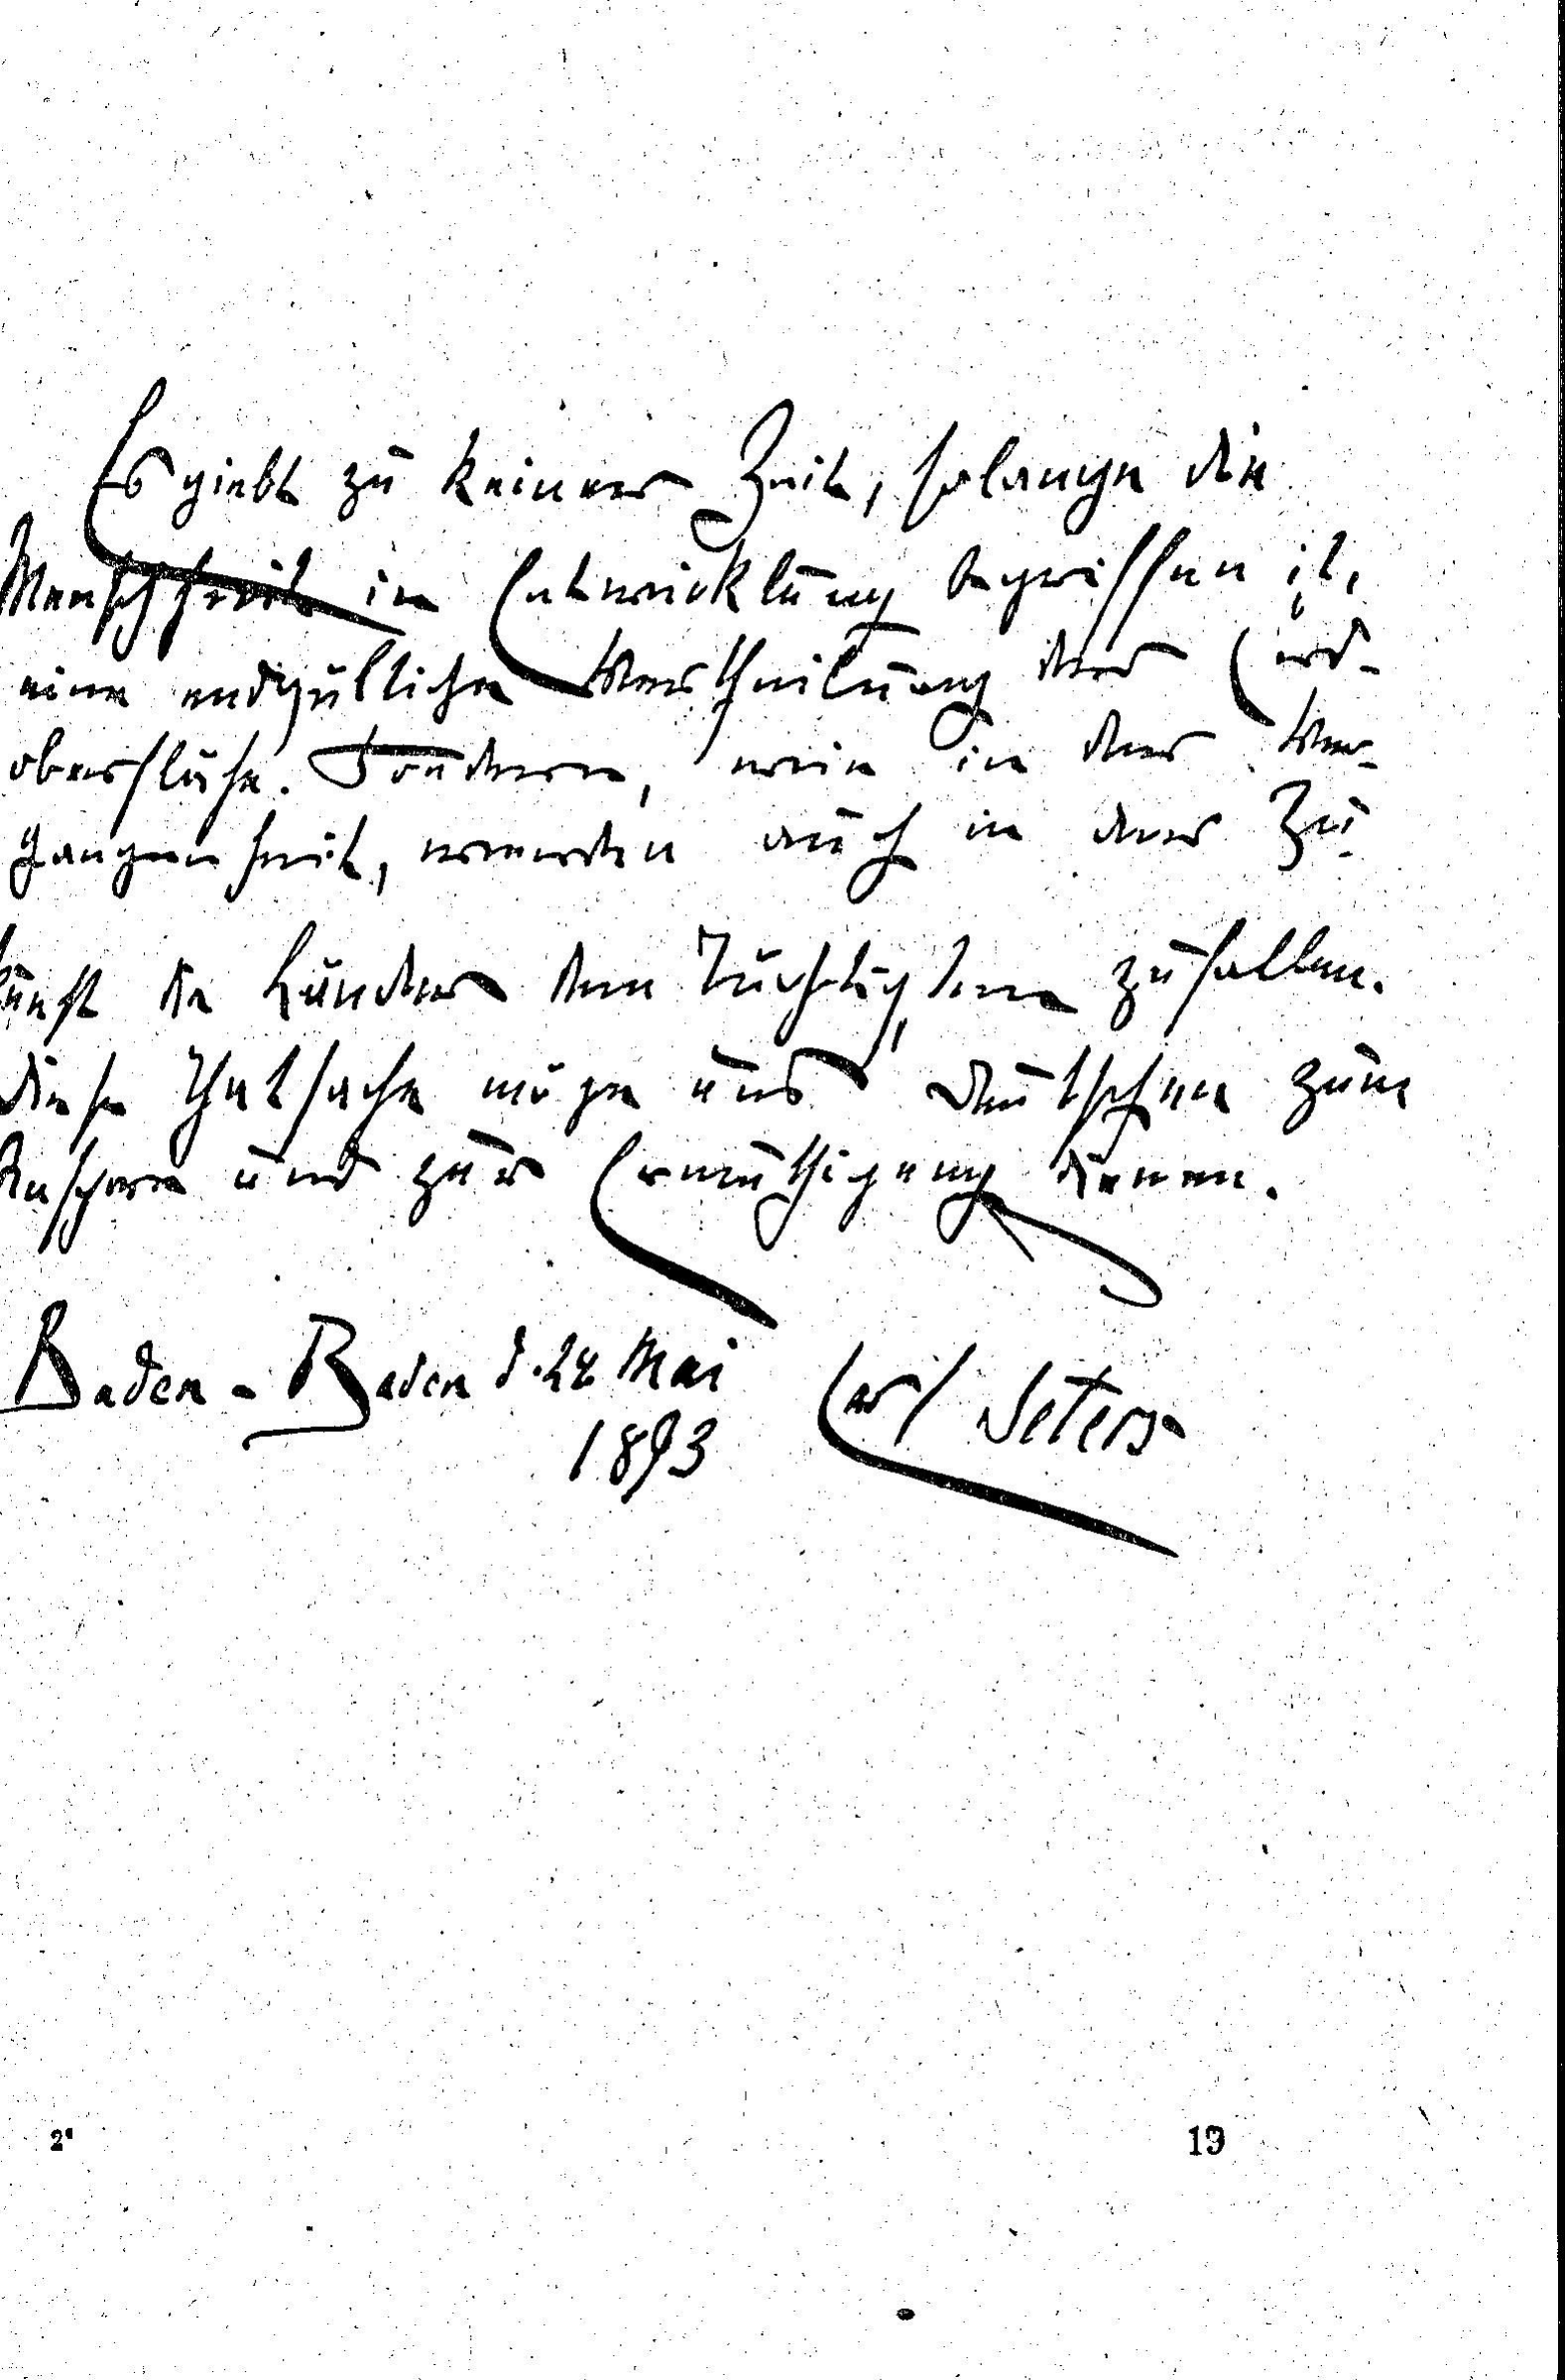 Es giebt zu keiner Zeit, solange die
Menschheit in Entwicklung begriffen ist,
eine endgültige Vertheilung der Erd-
oberfläche. Sondern, wie in der Ver-
gangenheit, werden auch in der Zu-
kunft die Länder dem Tüchtigsten zufallen.
Diese Thatsache möge uns Deutschen zum
Ansporn und zur Ermuthigung dienen.
Baden-Baden d. 28 Mai
1893
Carl Peters
2*
19